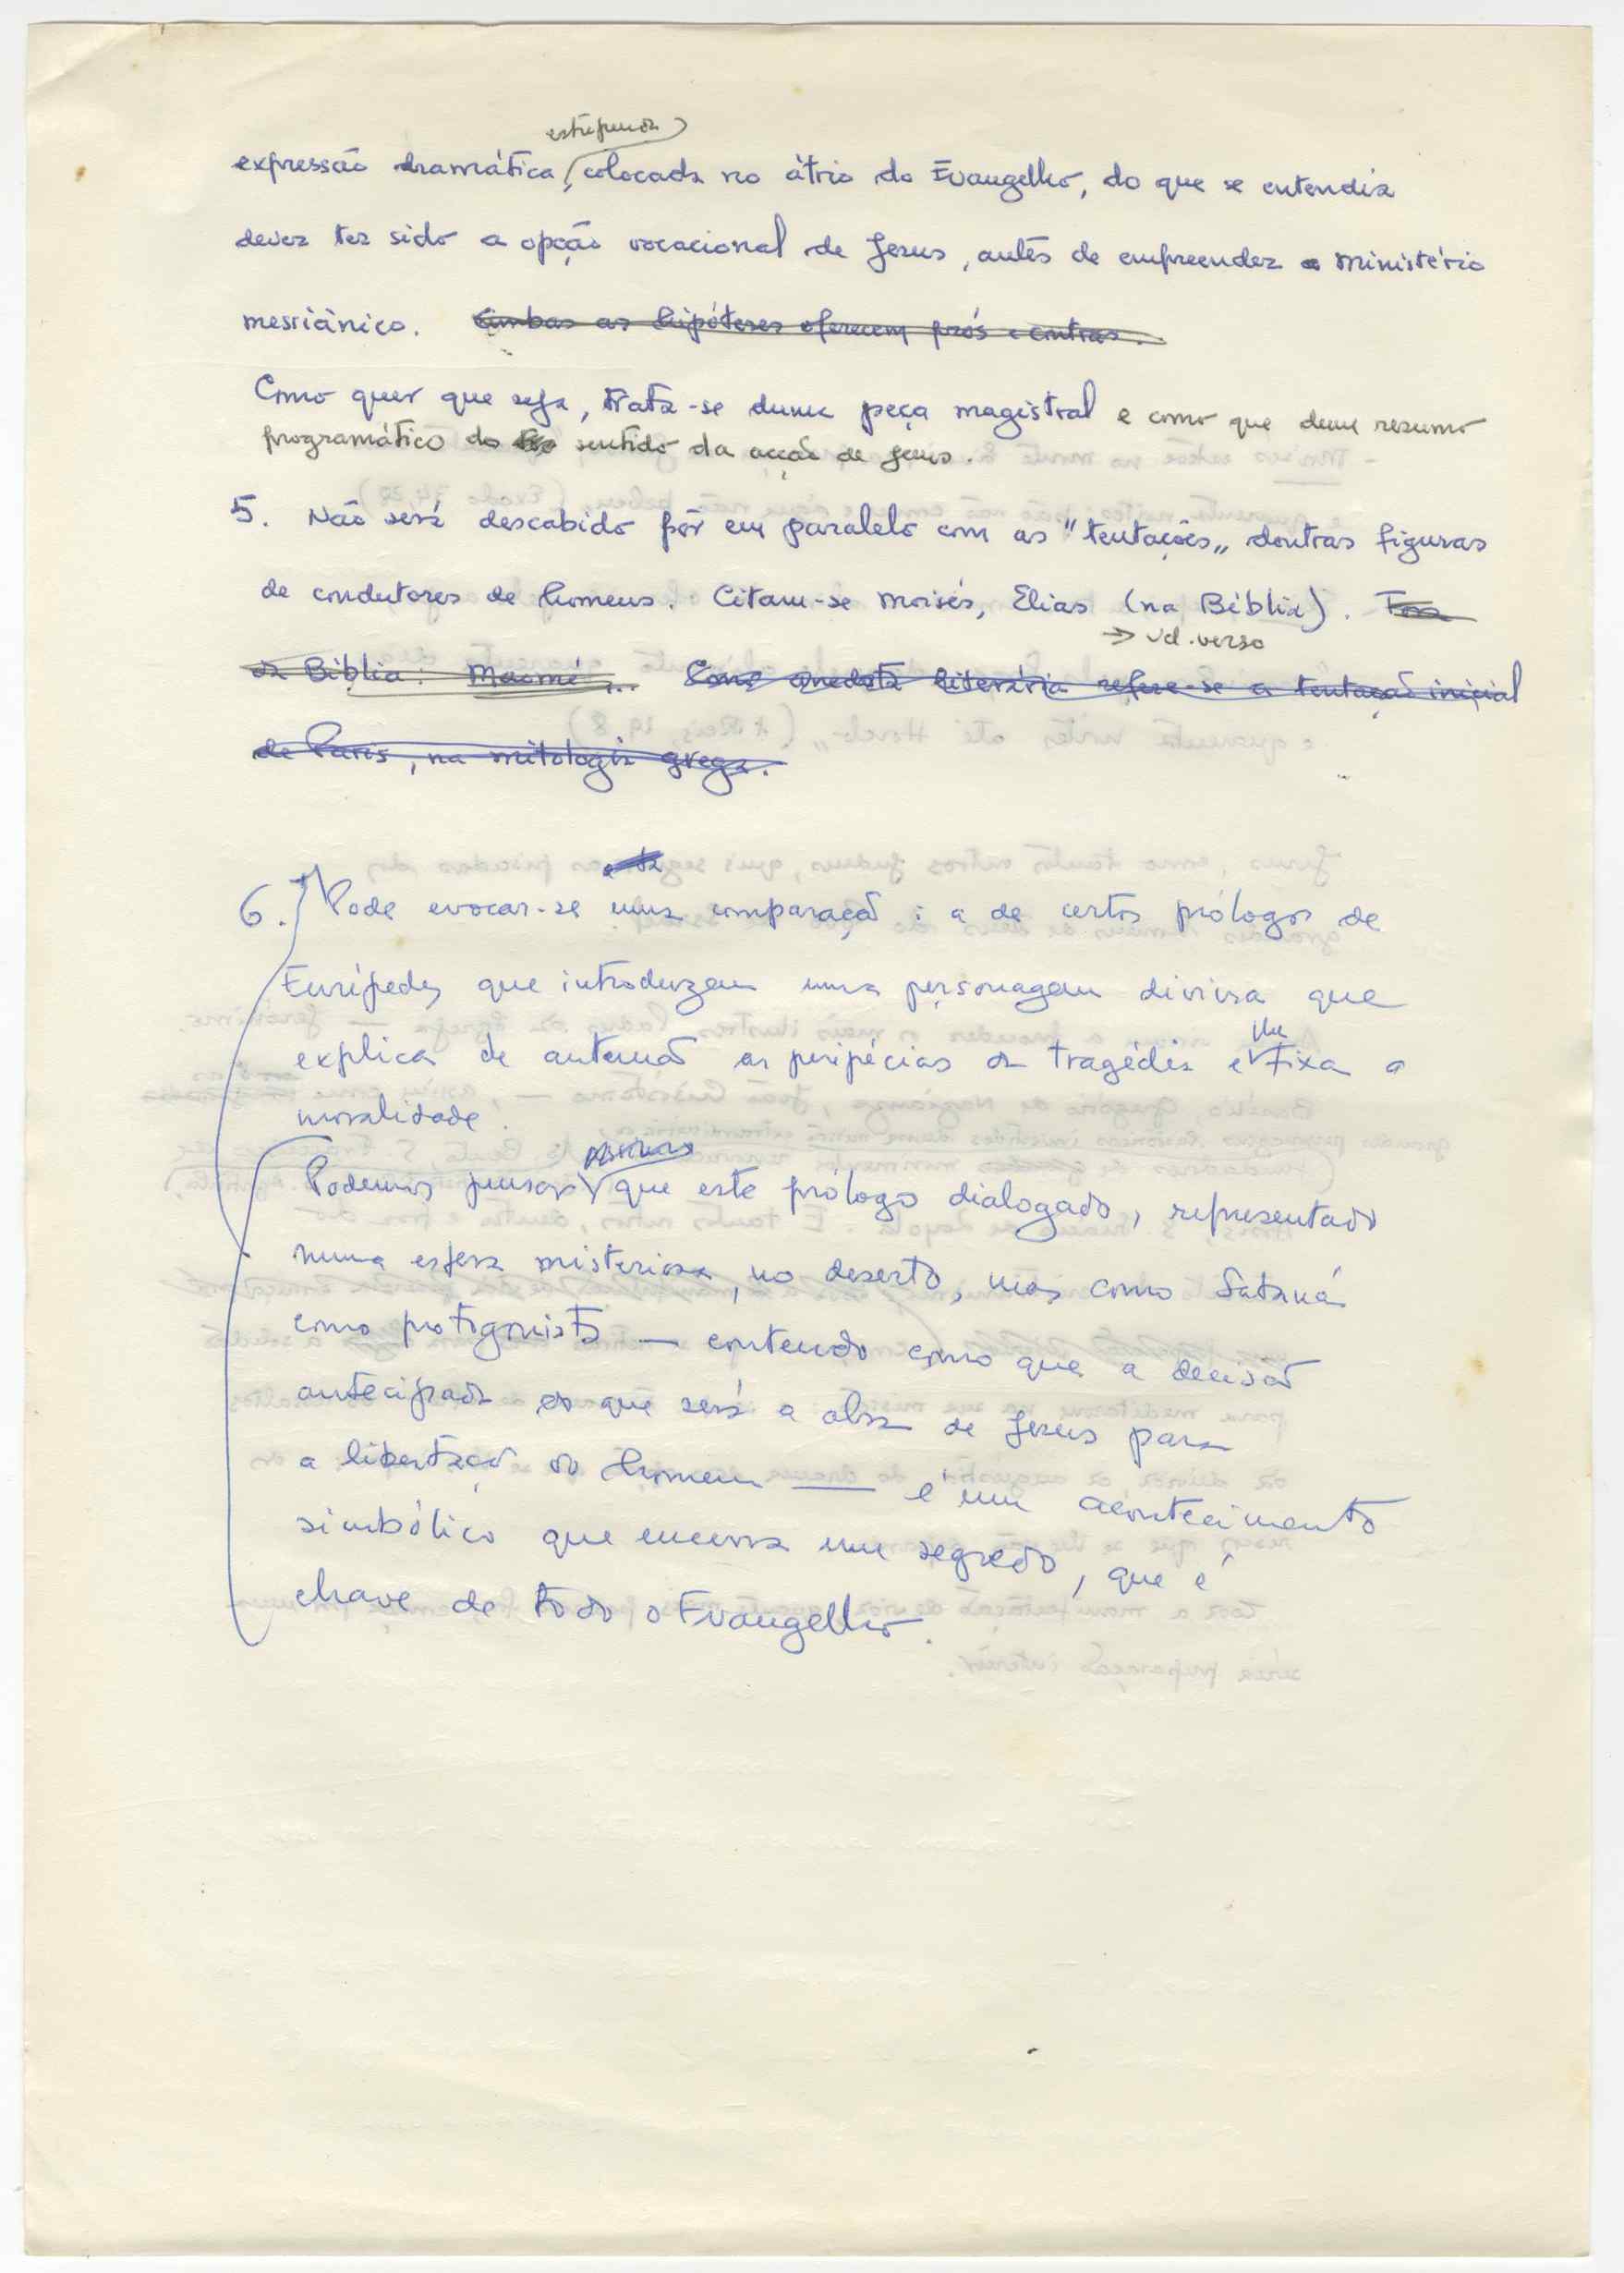 estupenda
expressão dramática, colocada no átrio do Evangelho, do que se entendia
dever ter sido a opção vocacional de Jesus, antes de empreender o ministério
messiânico. Ambas as hipóteses oferecem prós e contras.
Como quer que seja, trata-se duma peça magistral e como que dum resumo
programático do sentido da acção de Jesus.
5. Não será descabido pôr em paralelo com as "tentações" doutras figuras
de condutores de homens. Citam-se Moisés, Elias (na Bíblia). Fora
→ vd. verso
da Bíblia: Maomé... Como anedota literária refere-se a tentação inicial
de Paris, na mitologia grega.
6. Pode evocar-se uma comparação: a de certos prólogos de
Eurípedes que introduzem uma personagem divina que
lhe
explica de antemão as peripécias da tragédia e fixa a
moralidade.
Podemos pensar que este prólogo dialogado, representado
numa esfera misteriosa, no deserto, mas como Satanás
como protagonista — contendo como que a decisão
antecipada do que será a obra de Jesus para
a libertação do homem — é um acontecimento
simbólico que encerra um segredo, que é
chave de todo o Evangelho.